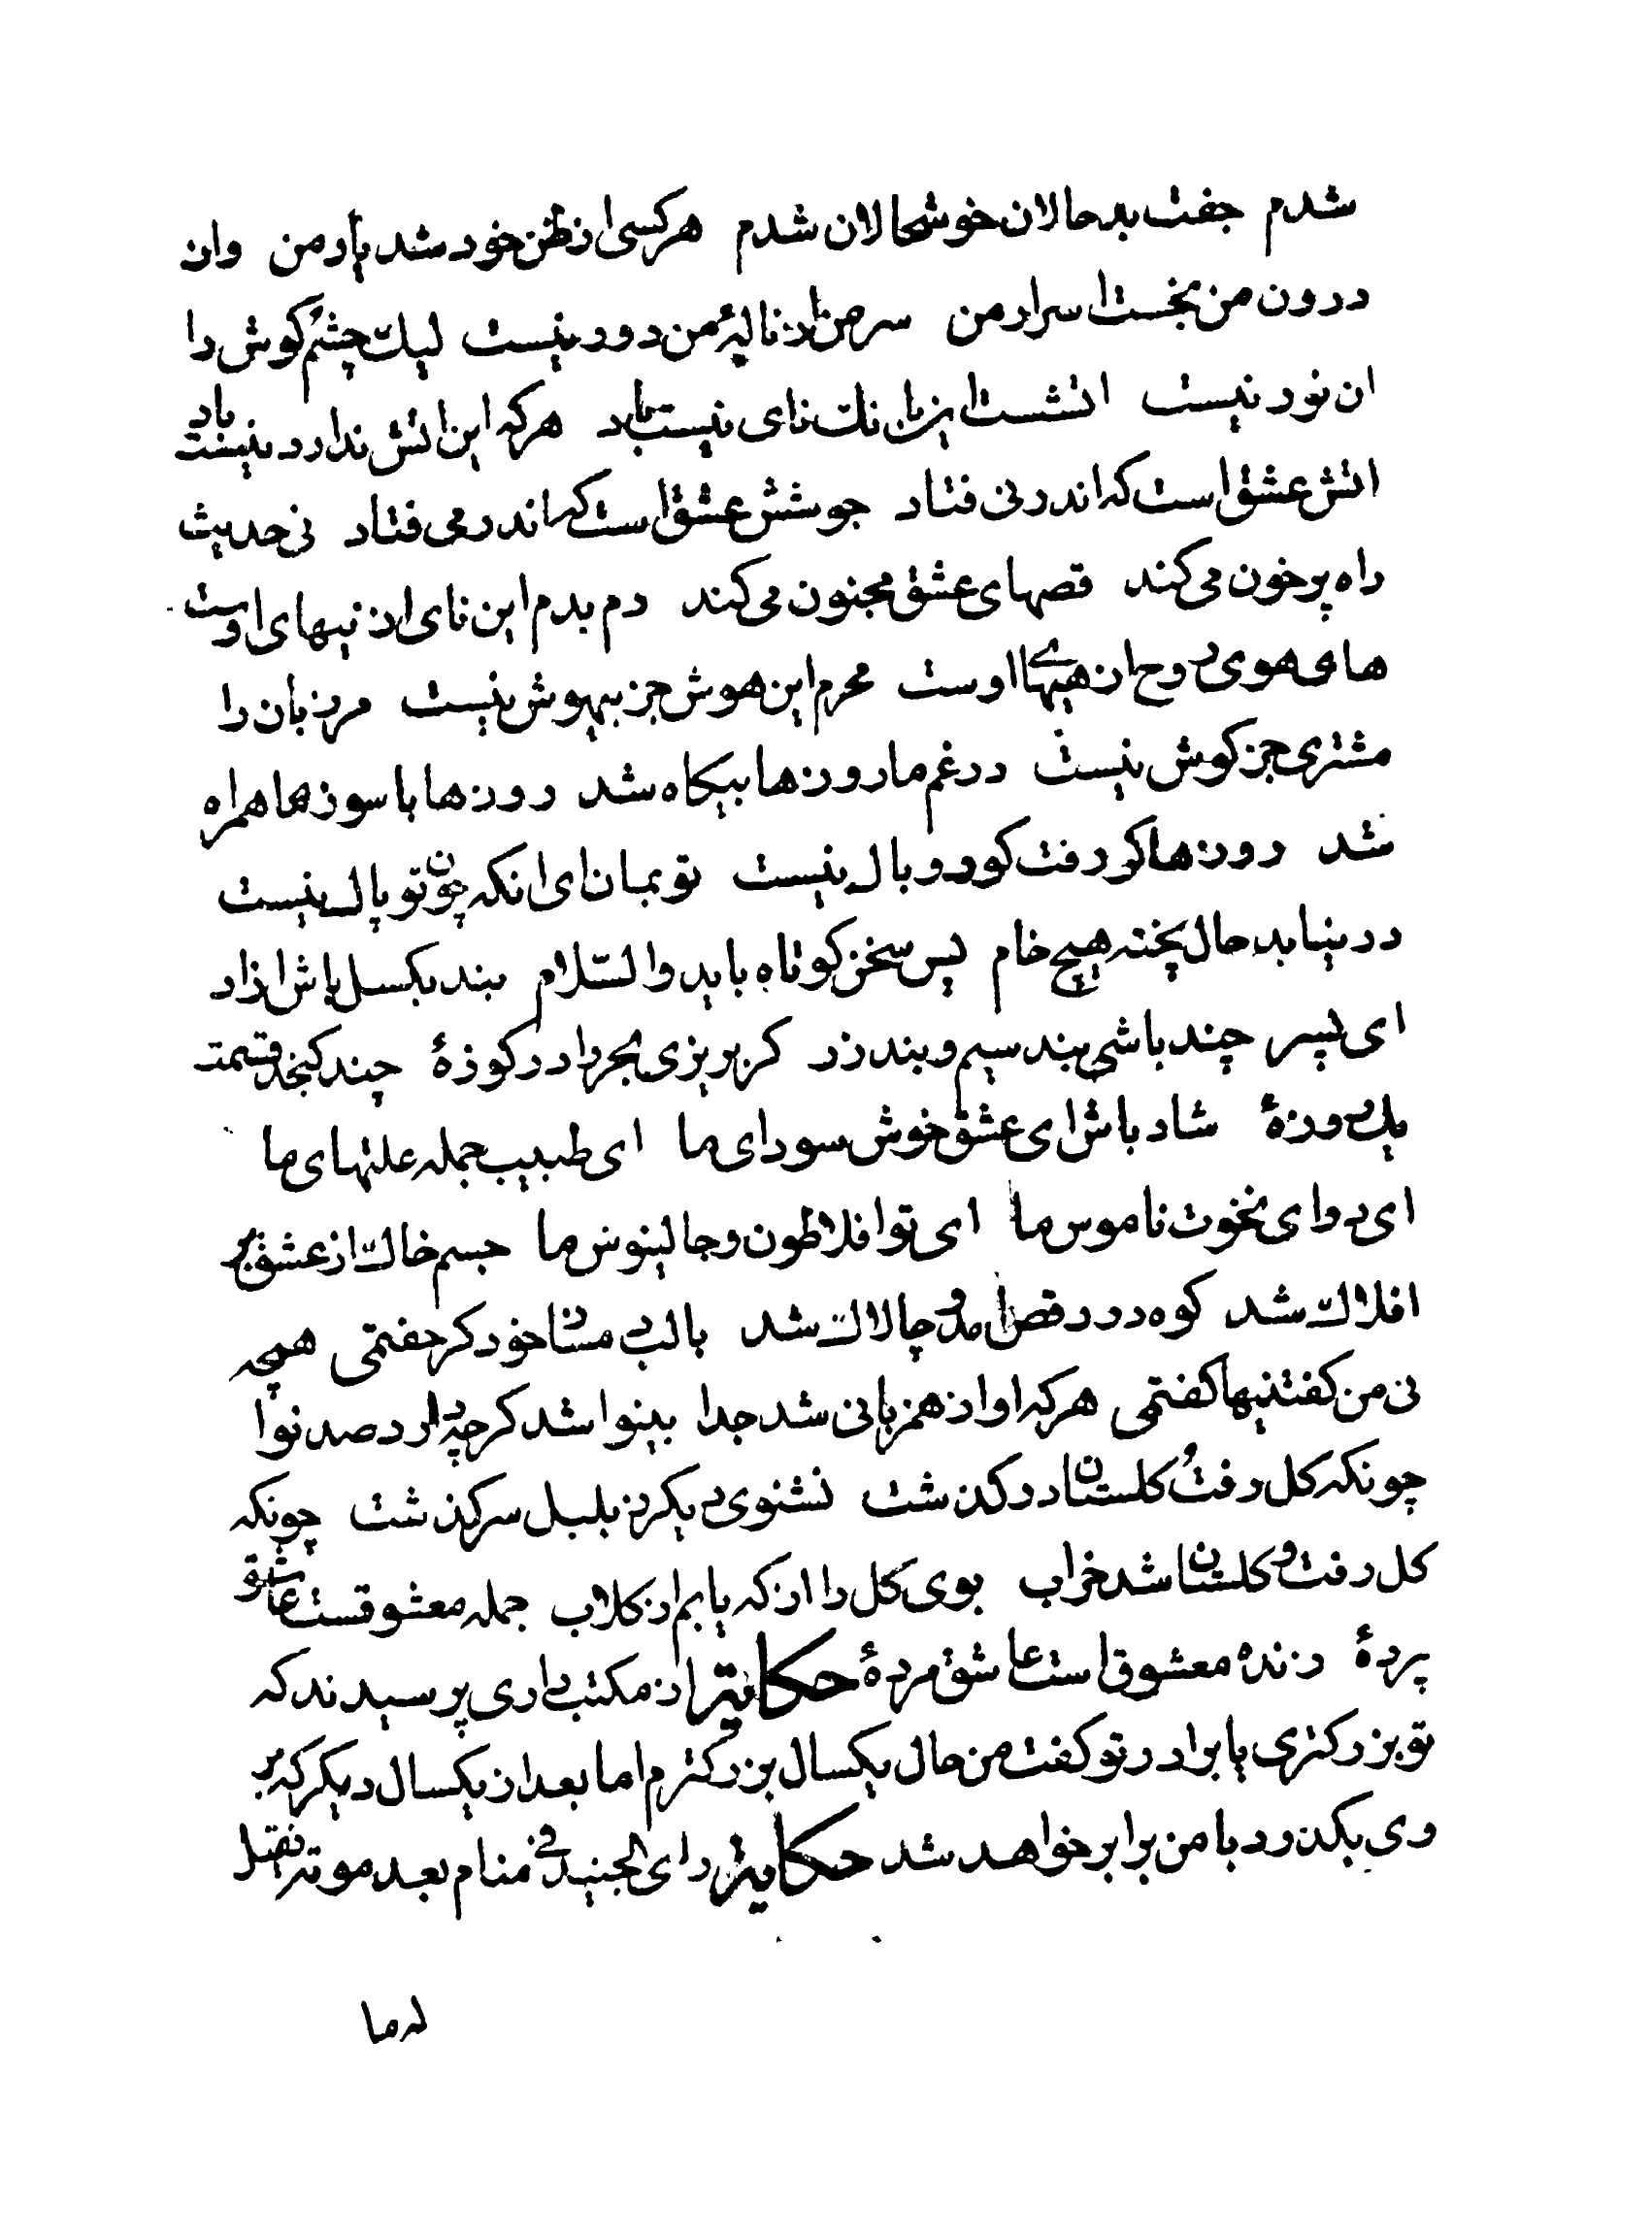 شدم جفت بدحالان خوشحالان شدم هرکسی از ظن خود شد یار من وان
درون من نجست اسرار من سر من از نالهٔ من دور نیست لیک چشم کوش را
ان نور نیست اتشست این بانک نای نیست باد هرکه این اتش ندارد نیست باد
اتش عشق است که اندر نی فتاد جوشش عشق است که اندر می فتاد نی حدیث
راه پرخون می کند قصهای عشق مجنون می کند دم بدم این نای از نیهای اوست
های هوی روح از هیهای اوست محرم این هوش جز بیهوش نیست مر زبان را
مشتری جز کوش نیست در غم ما روزها بیکاه شد روزها با سوزها همراه
شد روزها کر رفت کو رو بال نیست تو بمان ای انکه چون تو پاک نیست
در نیابد حال پخته هیچ خام پس سخن کوتاه باید والسّلام بند بکسل باش ازاد
ای پسر چند باشی بند سیم و بند زر کر بریزی بحر را در کوزهٔ چند کنجد قسمت
یک روزهٔ شاد باش ای عشق خوش سودای ما ای طبیب جمله علتهای ما
ای دوای نخوت ناموس ما ای تو افلاطون و جالینوس ما جسم خاک از عشق بر
افلاک شد کوه در رقص امد و چالاک شد با لب دمساز خود کر جفتمی همچو
نی من کفتنیها کفتمی هرکه او از همزبانی شد جدا بینوا شد کرچه دارد صد نوا
چونکه کل رفت و کلستان درکذشت نشنوی دیکر ز بلبل سرکذشت چونکه
کل رفت و کلستان شد خراب بوی کل را از که یابم از کلاب جمله معشوقست عاشق
پردهٔ زنده معشوق است عاشق مردهٔ حکایة از مکتب داری پرسیدند که
تو بزرکتری یا برادر تو کفت من حال یکسال بزرکترم اما بعد از یکسال دیکر که بر
وی بکذرد با من برابر خواهد شد حکایة رای الجنید فی منام بعد موته فقیل
له ما